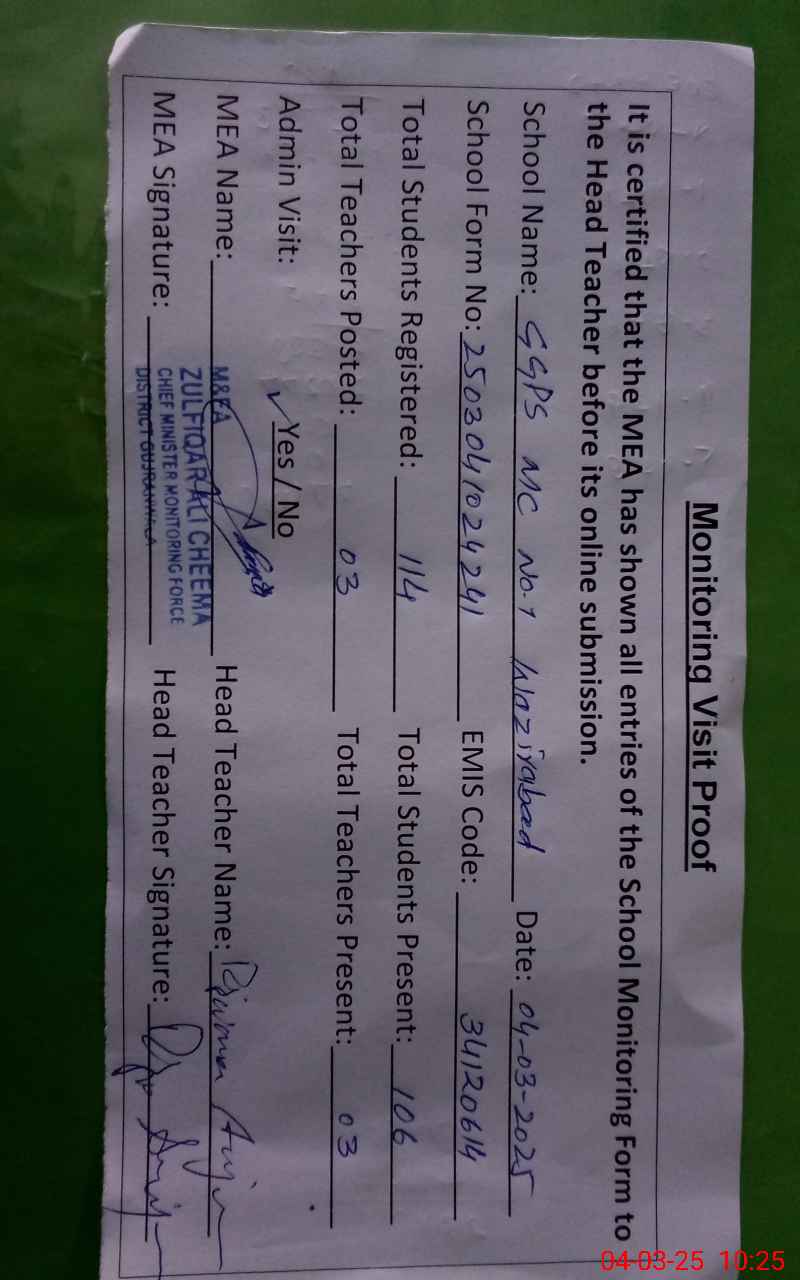 Monitoring Visit Proof
It is certified that the MEA has shown all entries of the School Monitoring Form to
the Head Teacher before its online submission.
School Name: GGPS MC No.1 Wazirabad Date: 04-03-2025
School Form No: 2503041024241 EMIS Code: 34120614
Total Students Registered: 114 Total Students Present: 106
Total Teachers Posted: 03 Total Teachers Present: 03
Admin Visit: ✓ Yes / No
MEA Name: Head Teacher Name:
M&EA
ZULFIQAR ALI CHEEMA
CHIEF MINISTER MONITORING FORCE
DISTRICT GUJRANWALA
MEA Signature: Head Teacher Signature:
04-03-25 10:25